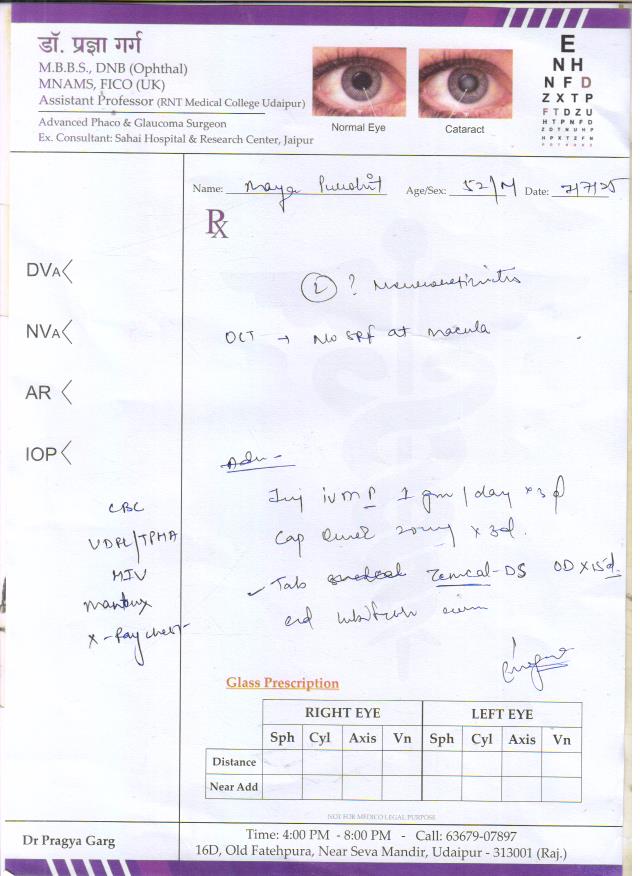 डॉ. प्रज्ञा गर्ग
M.B.B.S., DNB (Ophthal)
MNAMS, FICO (UK)
Assistant Professor (RNT Medical College Udaipur)
Advanced Phaco & Glaucoma Surgeon
Ex. Consultant: Sahai Hospital & Research Center, Jaipur
Normal Eye
Cataract
E
N H
N F D
Z X T P
F T D Z U
H T P N F D
Z D T N U H P
H P X T Z F N
Name: Maya Purohit Age/Sex: 52/M Date: 7/7/25
Rx
DVA
NVA
AR
IOP
? Neuroretinitis
OCT → No SRF at macula
Adv -
Inj IVMP 1 gm/day x 3 d
Cap 20mg x 3d.
Tab -DS OD x 15d
CBC
VDRL/TPHA
HIV
Mantoux
X-Ray chest
Glass Prescription
RIGHT EYE LEFT EYE
Sph Cyl Axis Vn Sph Cyl Axis Vn
Distance
Near Add
NOT FOR MEDICO LEGAL PURPOSE
Dr Pragya Garg
Time: 4:00 PM - 8:00 PM - Call: 63679-07897
16D, Old Fatehpura, Near Seva Mandir, Udaipur - 313001 (Raj.)